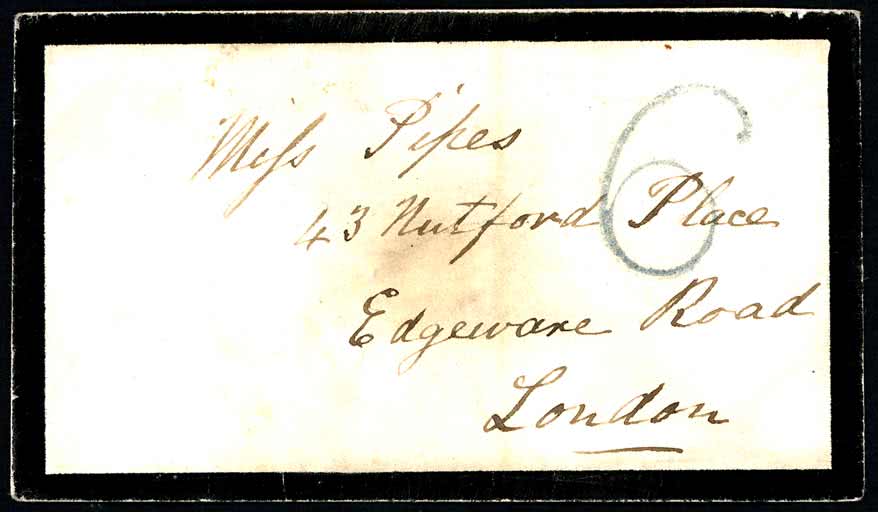 Miss Pipes
43 Nutford Place
6
Edgeware Road
London